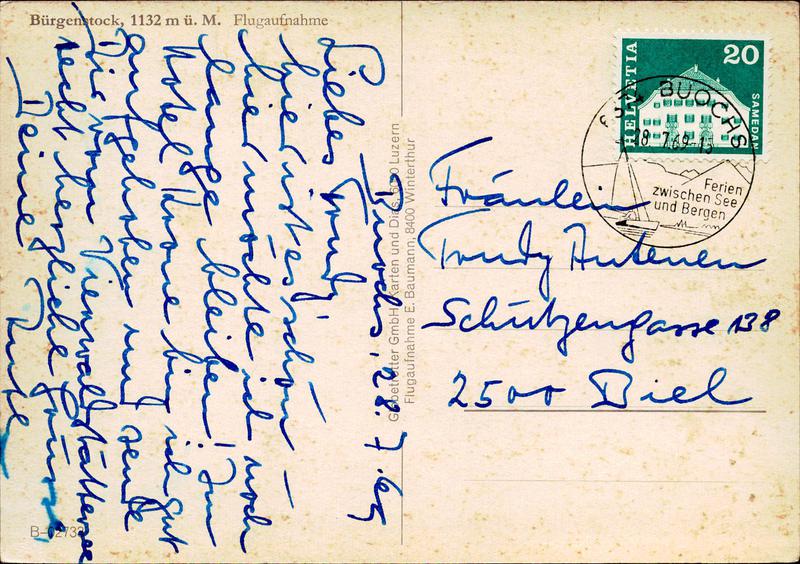 Bürgenstock, 1132 m ü. M. Flugaufnahme
Buochs, 28. 7. 69
Liebes Trudy,
hier ist es schön –
hier möchte ich noch
lange bleiben! Im
Hotel Krone bin ich gut
aufgehoben und sende
Dir vom Vierwaldstättersee
recht herzliche Grüsse
Deine
B-02732
Globetrotter GmbH, Karten und Dias, 6000 Luzern
Flugaufnahme E. Baumann, 8400 Winterthur
HELVETIA
20
SAMEDAN
BUOCHS
28. 7.69-15
Ferien
zwischen See
und Bergen
Fräulein
Trudy Antenen
Schützengasse 138
2500 Biel